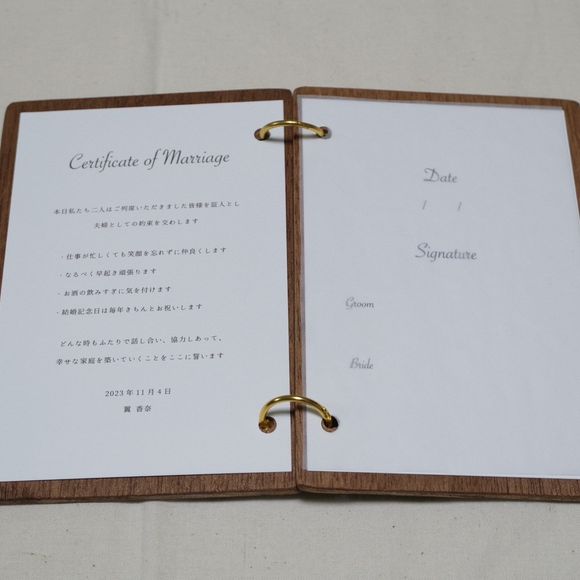 Certificate of Marriage
本日私たち二人はご列席いただきました皆様を証人とし
夫婦としての約束を交わします
・仕事が忙しくても笑顔を忘れずに仲良くします
・なるべく早起き頑張ります
・お酒の飲みすぎに気を付けます
・結婚記念日は毎年きちんとお祝いします
どんな時もふたりで話し合い、協力しあって、
幸せな家庭を築いていくことをここに誓います
2023年11月4日
翼 香奈
Date
/ /
Signature
Groom
Bride